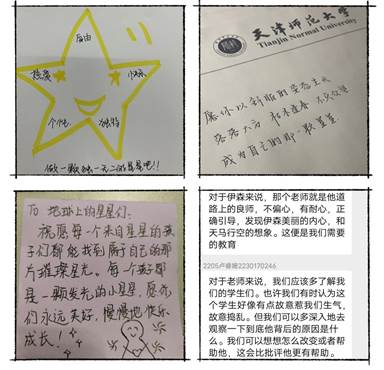 自由
个性
独特
做一颗独一无二的星星吧!!
天津师范大学
Tianjin Normal University
愿你以舒服的姿态生长
落落大方 不负众望
成为自己的那一颗星星
To 地球上的星星们:
祝愿每一个来自星星的孩
子们都能找到属于自己的那
片璀璨星光。每个孩子都
是一颗发光的小星星,愿你
们永远美好,慢慢地快乐
成长!
对于伊森来说,那个老师就是他道
路上的良师,不偏心,有耐心,正
确引导,发现伊森美丽的内心,和
天马行空的想象。这便是我们需要
的教育
2230170246
对于老师来说,我们应该多了解我
们的学生们。也许我们有时认为这
个学生好像有点故意惹我们生气,
故意捣乱。但我们可以多深入地去
观察一下到底他背后的原因是什
么。我们可以想想怎么改变或者帮
助他、这会比批评他更有帮助。